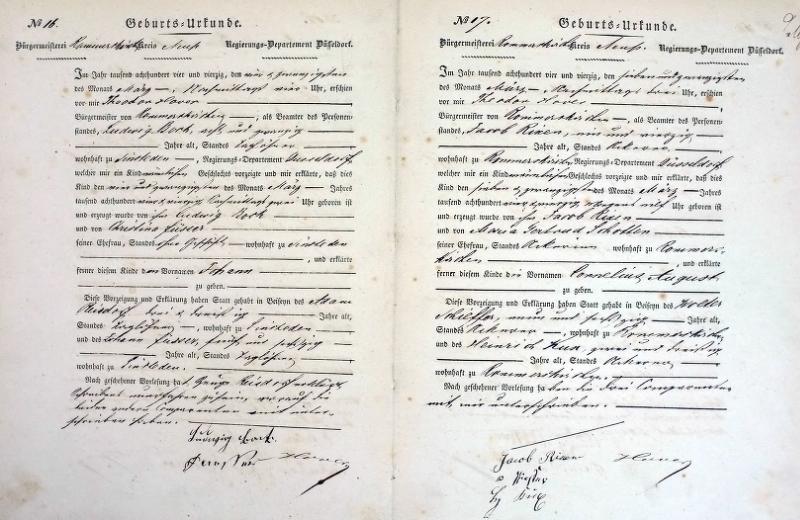 № 16.
Geburts-Urkunde.
Bürgermeisterei Rommerskirchen Kreis Neuß Regierungs-Departement Düsseldorf.
Im Jahr tausend achthundert vier und vierzig, den vier & zwanzigsten
des Monats März — Nachmittags vier Uhr, erschien
vor mir Theodor Hover
Bürgermeister von Rommerskirchen, als Beamter des Personen-
standes, Ludwig Bock, acht und zwanzig
Jahre alt, Standes
wohnhaft zu Sinsteden, Regierungs-Departement Düsseldorf
welcher mir ein Kind männlichen Geschlechts vorzeigte und mir erklärte, daß dies
Kind den vier und zwanzigsten des Monats März — Jahres
tausend achthundert vier & vierzig Nachmittags zwei Uhr geboren ist
und erzeugt wurde von ihm Ludwig Bock
und von Christina
seiner Ehefrau, Standes ohne Geschäft — wohnhaft zu Sinsteden
, und erklärte
ferner diesem Kinde den Vornamen Johann
zu geben.
Diese Vorzeigung und Erklärung haben Statt gehabt in Beiseyn des Adam
drei & dreißig Jahre alt,
Standes Taglöhner, wohnhaft zu Sinsteden
und des Johann fünf und sechzig
Jahre alt, Standes Taglöhner
wohnhaft zu Sinsteden.
Nach geschehener Vorlesung hat Zeuge
Schreibens unerfahren zu sein, worauf die
beiden andern Comparenten mit unter-
schrieben haben.
Ludwig Bock.
Hover
№ 17.
Geburts-Urkunde.
Bürgermeisterei Rommerskirchen Kreis Neuß. Regierungs-Departement Düsseldorf.
Im Jahr tausend achthundert vier und vierzig, den sieben und zwanzigsten
des Monats März — Nachmittags drei Uhr, erschien
vor mir Theodor Hover
Bürgermeister von Rommerskirchen — als Beamter des Personen-
standes, Jacob Rixen, ein und vierzig
Jahre alt, Standes Ackerer
wohnhaft zu Rommerskirchen Regierungs-Departement Düsseldorf
welcher mir ein Kind männlichen Geschlechts vorzeigte und mir erklärte, daß dies
Kind den sieben & zwanzigsten des Monats März — Jahres
tausend achthundert vier & vierzig, morgens elf Uhr geboren ist
und erzeugt wurde von ihm Jacob Rixen
und von Maria Gertrud Schotten
seiner Ehefrau, Standes Ackerin wohnhaft zu Rommers-
kirchen, und erklärte
ferner diesem Kinde die Vornamen Cornelius, August
zu geben.
Diese Vorzeigung und Erklärung haben Statt gehabt in Beiseyn des
neun und sechzig — Jahre alt,
Standes Ackerer, wohnhaft zu Rommerskirchen
und des Heinrich Kux, zwei und dreißig
Jahre alt, Standes Ackerer
wohnhaft zu Rommerskirchen.
Nach geschehener Vorlesung haben die drei Comparenten
mit mir unterschrieben.
Jacob Rixen Hover
Hy Kux